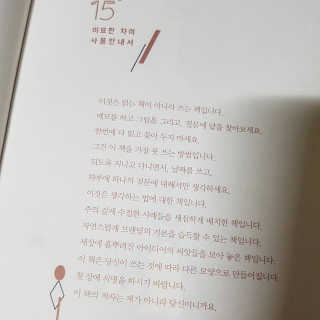 15°
미묘한 차이
사용안내서
이것은 읽는 책이 아니라 쓰는 책입니다.
메모를 하고 그림을 그리고, 질문에 답을 찾아보세요.
한번에 다 읽고 꽂아 두지 마세요.
그건 이 책을 가장 못 쓰는 방법입니다.
되도록 지니고 다니면서, 날짜를 쓰고,
하루에 하나의 질문에 대해서만 생각하세요.
이것은 생각하는 법에 대한 책입니다.
주의 깊게 수집한 사례들을 세심하게 배치한 책입니다.
자연스럽게 브랜딩의 기본을 습득할 수 있는 책입니다.
세상에 흩뿌려진 아이디어의 씨앗들을 모아 놓은 책입니다.
이 책은 당신이 쓰는 것에 따라 다른 모양으로 만들어집니다.
첫 장에 서명을 하시기 바랍니다.
이 책의 저자는 제가 아니라 당신이니까요.